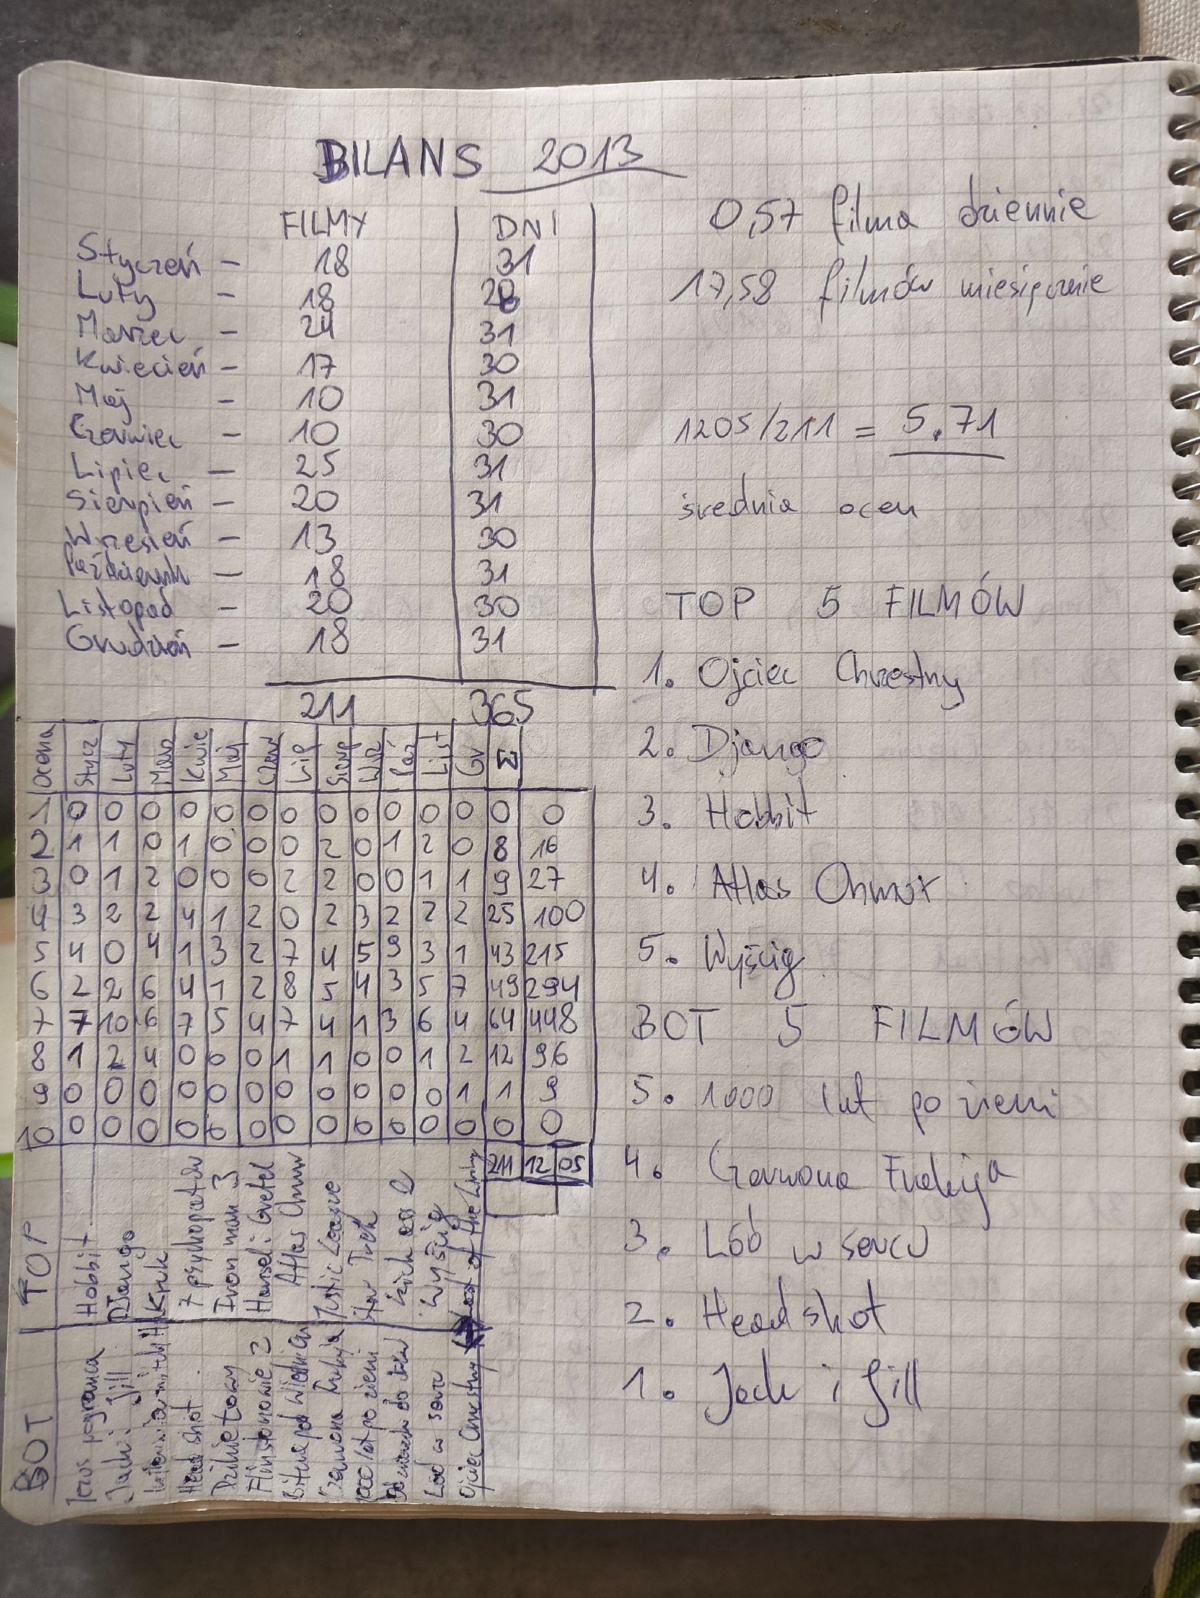 BILANS 2013
FILMY DNI
Styczeń - 18 31
Luty - 18 28
Marzec - 24 31
Kwiecień - 17 30
Maj - 10 31
Czerwiec - 10 30
Lipiec - 25 31
Sierpień - 20 31
Wrzesień - 13 30
Październik - 18 31
Listopad - 20 30
Grudzień - 18 31
211 365
Ocena Stycz Luty Marz Kwie Maj Czerw Lip Sierp Wrz Paź List Gr Σ
1 0 0 0 0 0 0 0 0 0 0 0 0 0 0
2 1 1 0 1 0 0 0 2 0 1 2 0 8 16
3 0 1 2 0 0 0 2 2 0 0 1 1 9 27
4 3 2 2 4 1 2 0 2 3 2 2 2 25 100
5 4 0 4 1 3 2 7 4 5 9 3 1 43 215
6 2 2 6 4 1 2 8 5 4 3 5 7 49 294
7 7 10 6 7 5 4 7 4 1 3 6 4 64 448
8 1 2 4 0 0 0 1 1 0 0 1 2 12 96
9 0 0 0 0 0 0 0 0 0 0 0 1 1 9
10 0 0 0 0 0 0 0 0 0 0 0 0 0 0
211 1205
TOP
Hobbit
Django
Kruk
7 psychopatów
Iron man 3
Hansel i Gretel
Atlas Chmur
Justic League
Star Trek
Kick ass 2
Wyścig
BOT
Jack i Jill
Head shot
Flinstonowie 2
Czerwona Frakcja
1000 lat po ziemi
Lód w sercu
Ojciec Chrzestny
0,57 filma dziennie
17,58 filmów miesięcznie
1205/211 = 5.71
średnia ocen
TOP 5 FILMÓW
1. Ojciec Chrzestny
2. Django
3. Hobbit
4. Atlas Chmur
5. Wyścig
BOT 5 FILMÓW
5. 1000 lat po ziemi
4. Czerwona Frakcja
3. Lód w sercu
2. Head shot
1. Jack i Jill